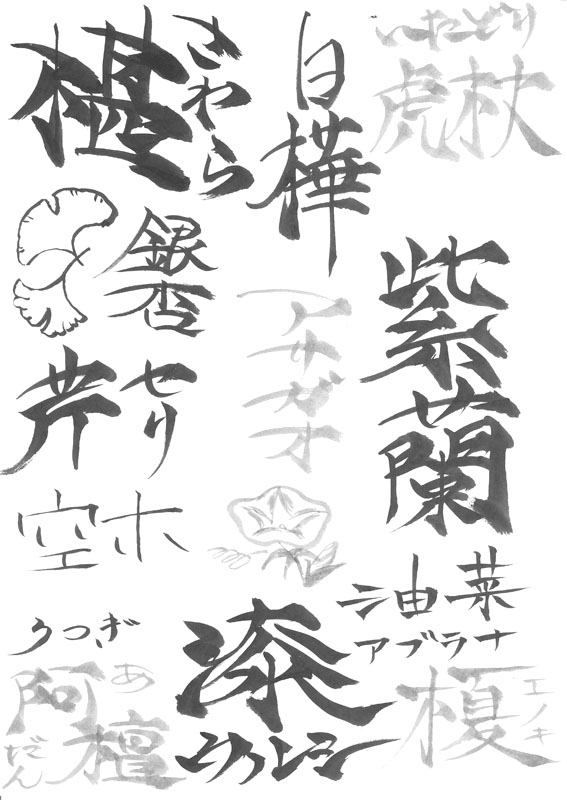 いたどり
虎杖
白樺
椹
さわら
銀杏
アサガオ
紫蘭
芹
セリ
空木
うつぎ
油菜
アブラナ
漆
榎
エノキ
阿檀
あだん